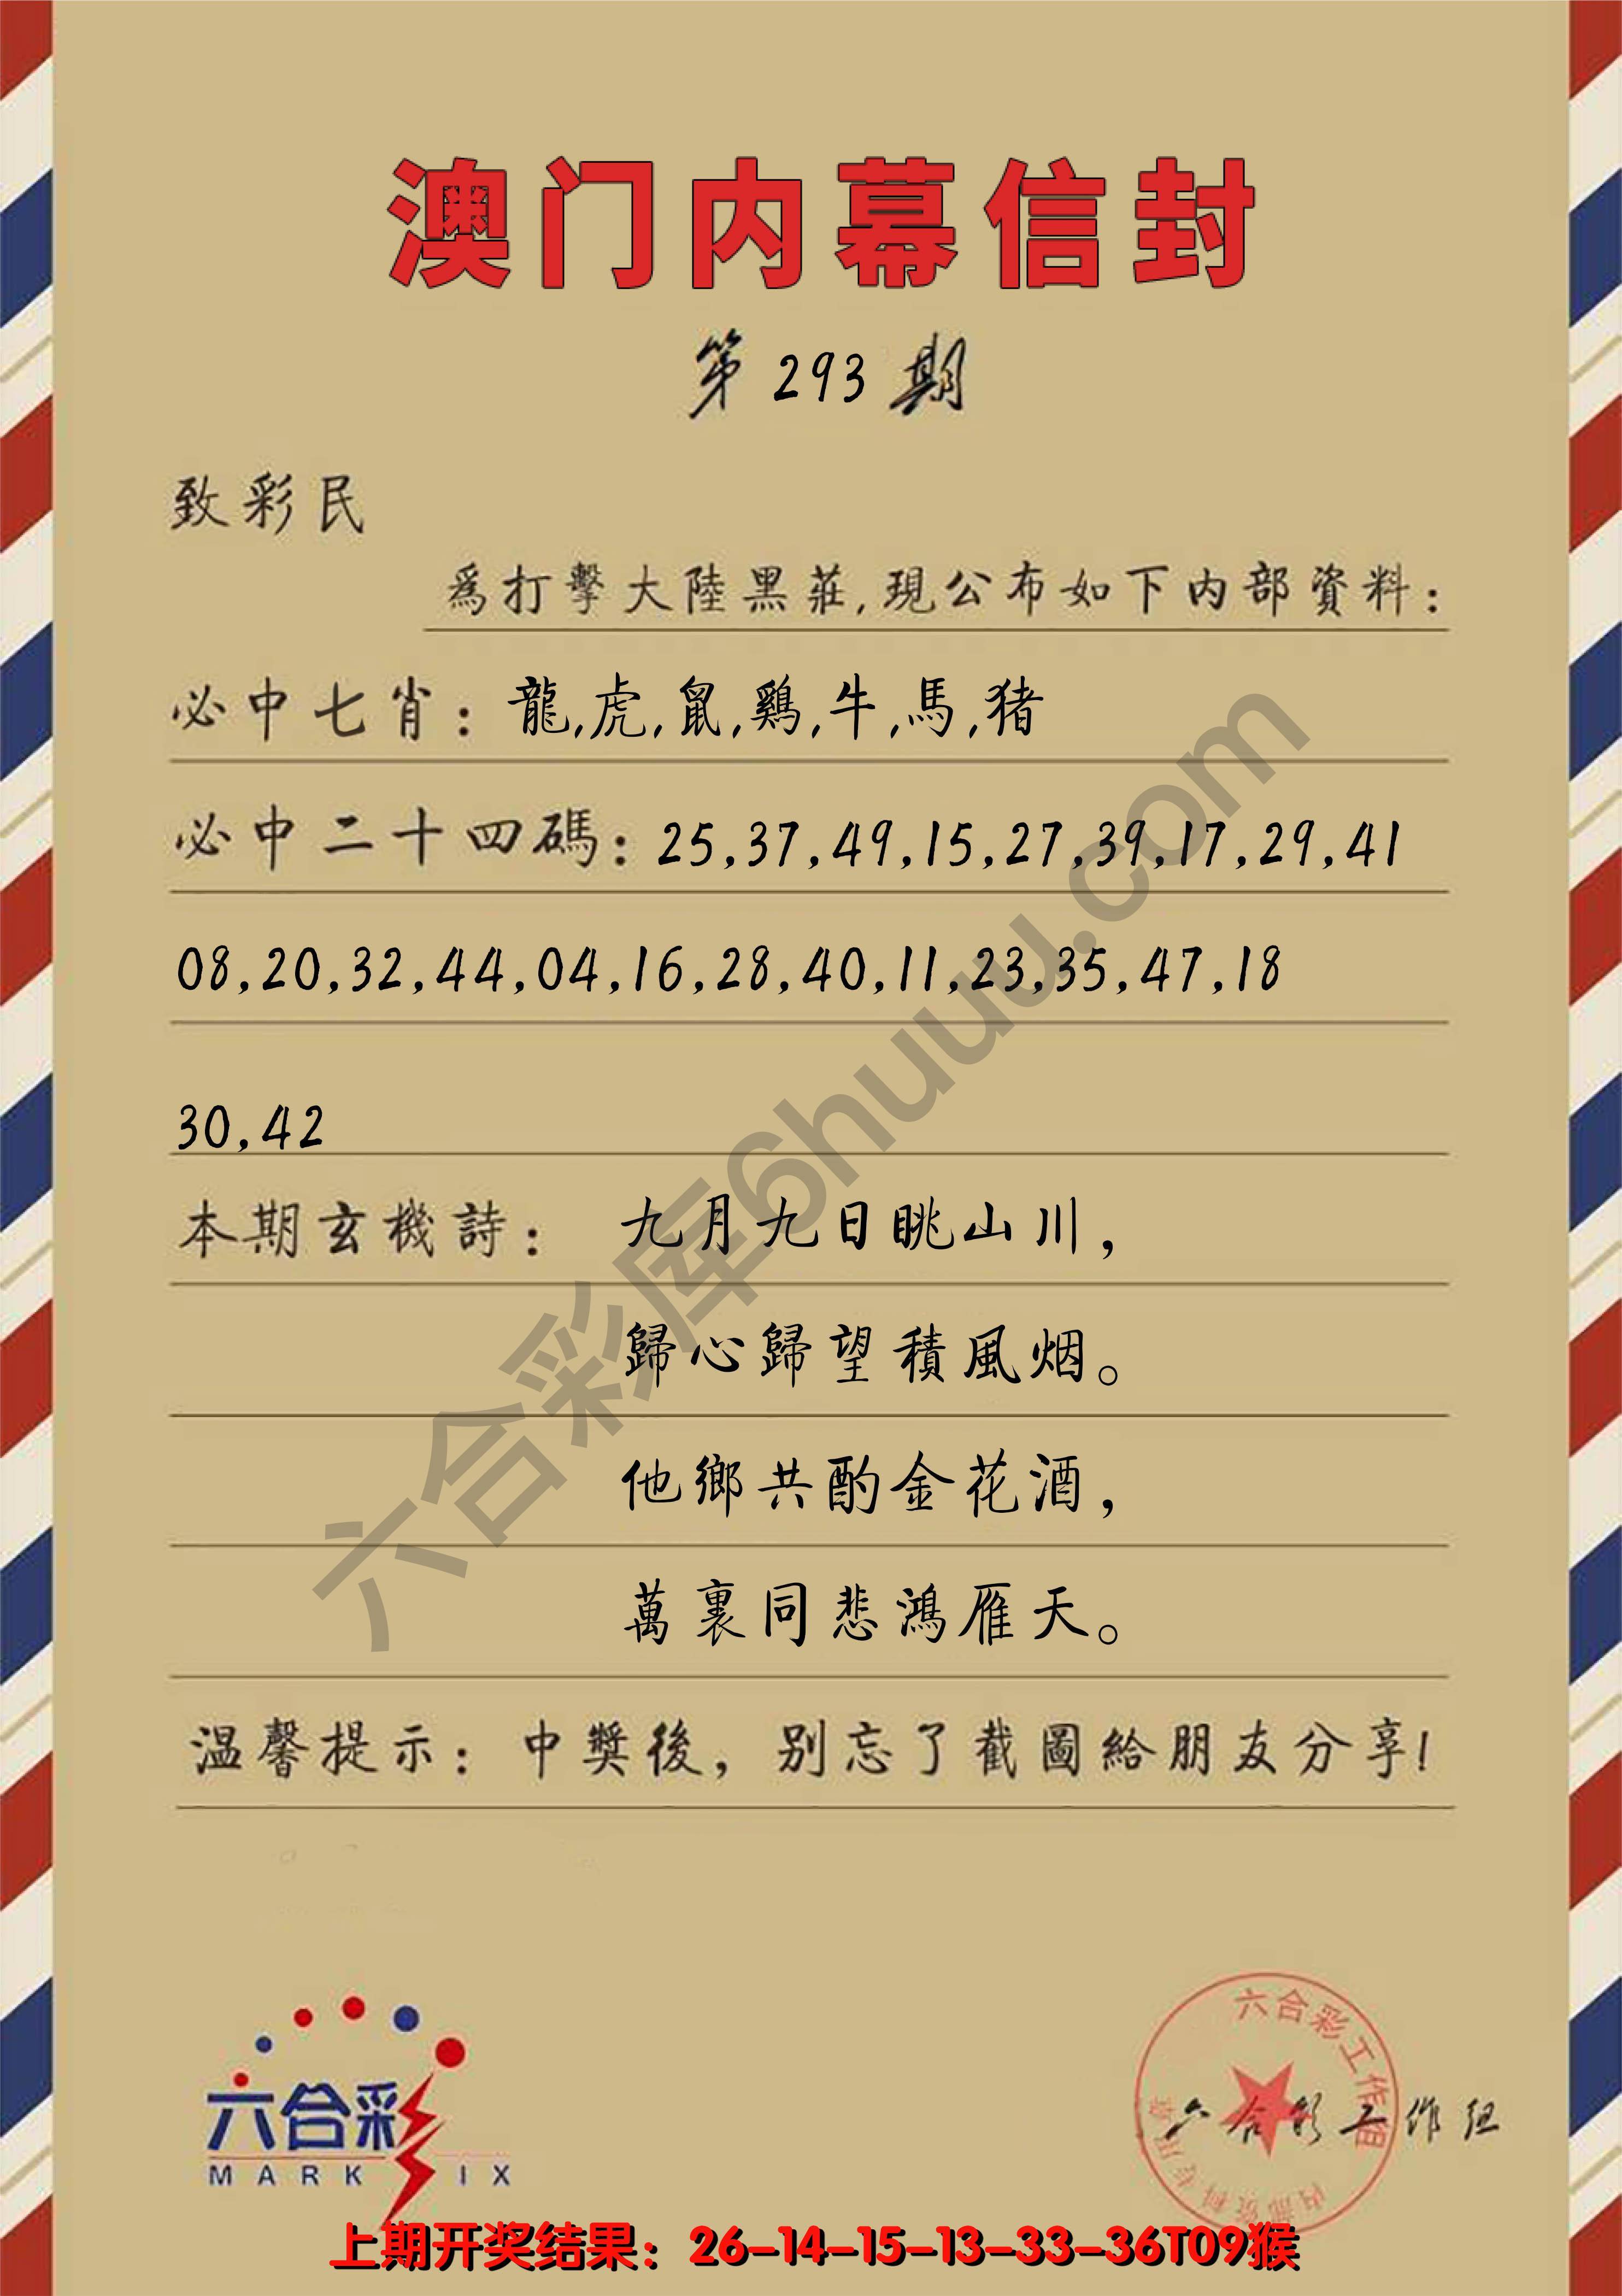 澳门内幕信封
第 293 期
致彩民
爲打擊大陸黑莊,現公布如下内部資料:
必中七肖: 龍,虎,鼠,鷄,牛,馬,猪
必中二十四碼: 25,37,49,15,27,39,17,29,41
08,20,32,44,04,16,28,40,11,23,35,47,18
30,42
本期玄機詩: 九月九日眺山川,
歸心歸望積風烟。
他鄉共酌金花酒,
萬裏同悲鴻雁天。
温馨提示: 中獎後, 别忘了截圖給朋友分享!
六合彩库6huuu.com
六合彩
MARK SIX
六合彩工作组
六合彩工作组
上期开奖结果: 26-14-15-13-33-36T09猴